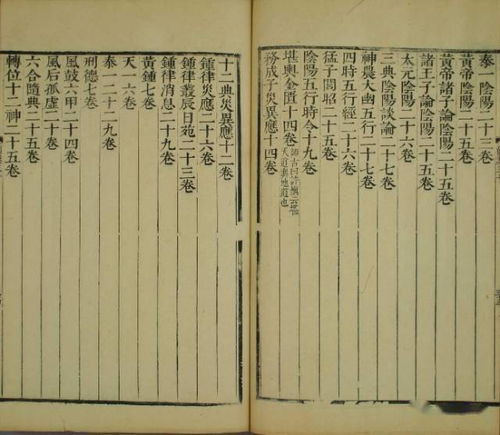 泰一陰陽二十三卷
黃帝陰陽二十五卷
黃帝諸子論陰陽二十五卷
諸王子論陰陽二十五卷
太元陰陽二十六卷
三典陰陽談論二十七卷
神農大幽五行二十七卷
四時五行經二十六卷
猛子閭昭二十五卷
陰陽五行時令十九卷
堪輿金匱十四卷師古曰許慎云堪天道輿地道也
務成子災異應十四卷
十二典災異應十二卷
鍾律災應二十六卷
鍾律叢辰日苑二十三卷
鍾律消息二十九卷
黃鍾七卷
天一六卷
泰一二十九卷
刑德七卷
風鼓六甲二十四卷
風后孤虛二十卷
六合隨典二十五卷
轉位十二神二十五卷